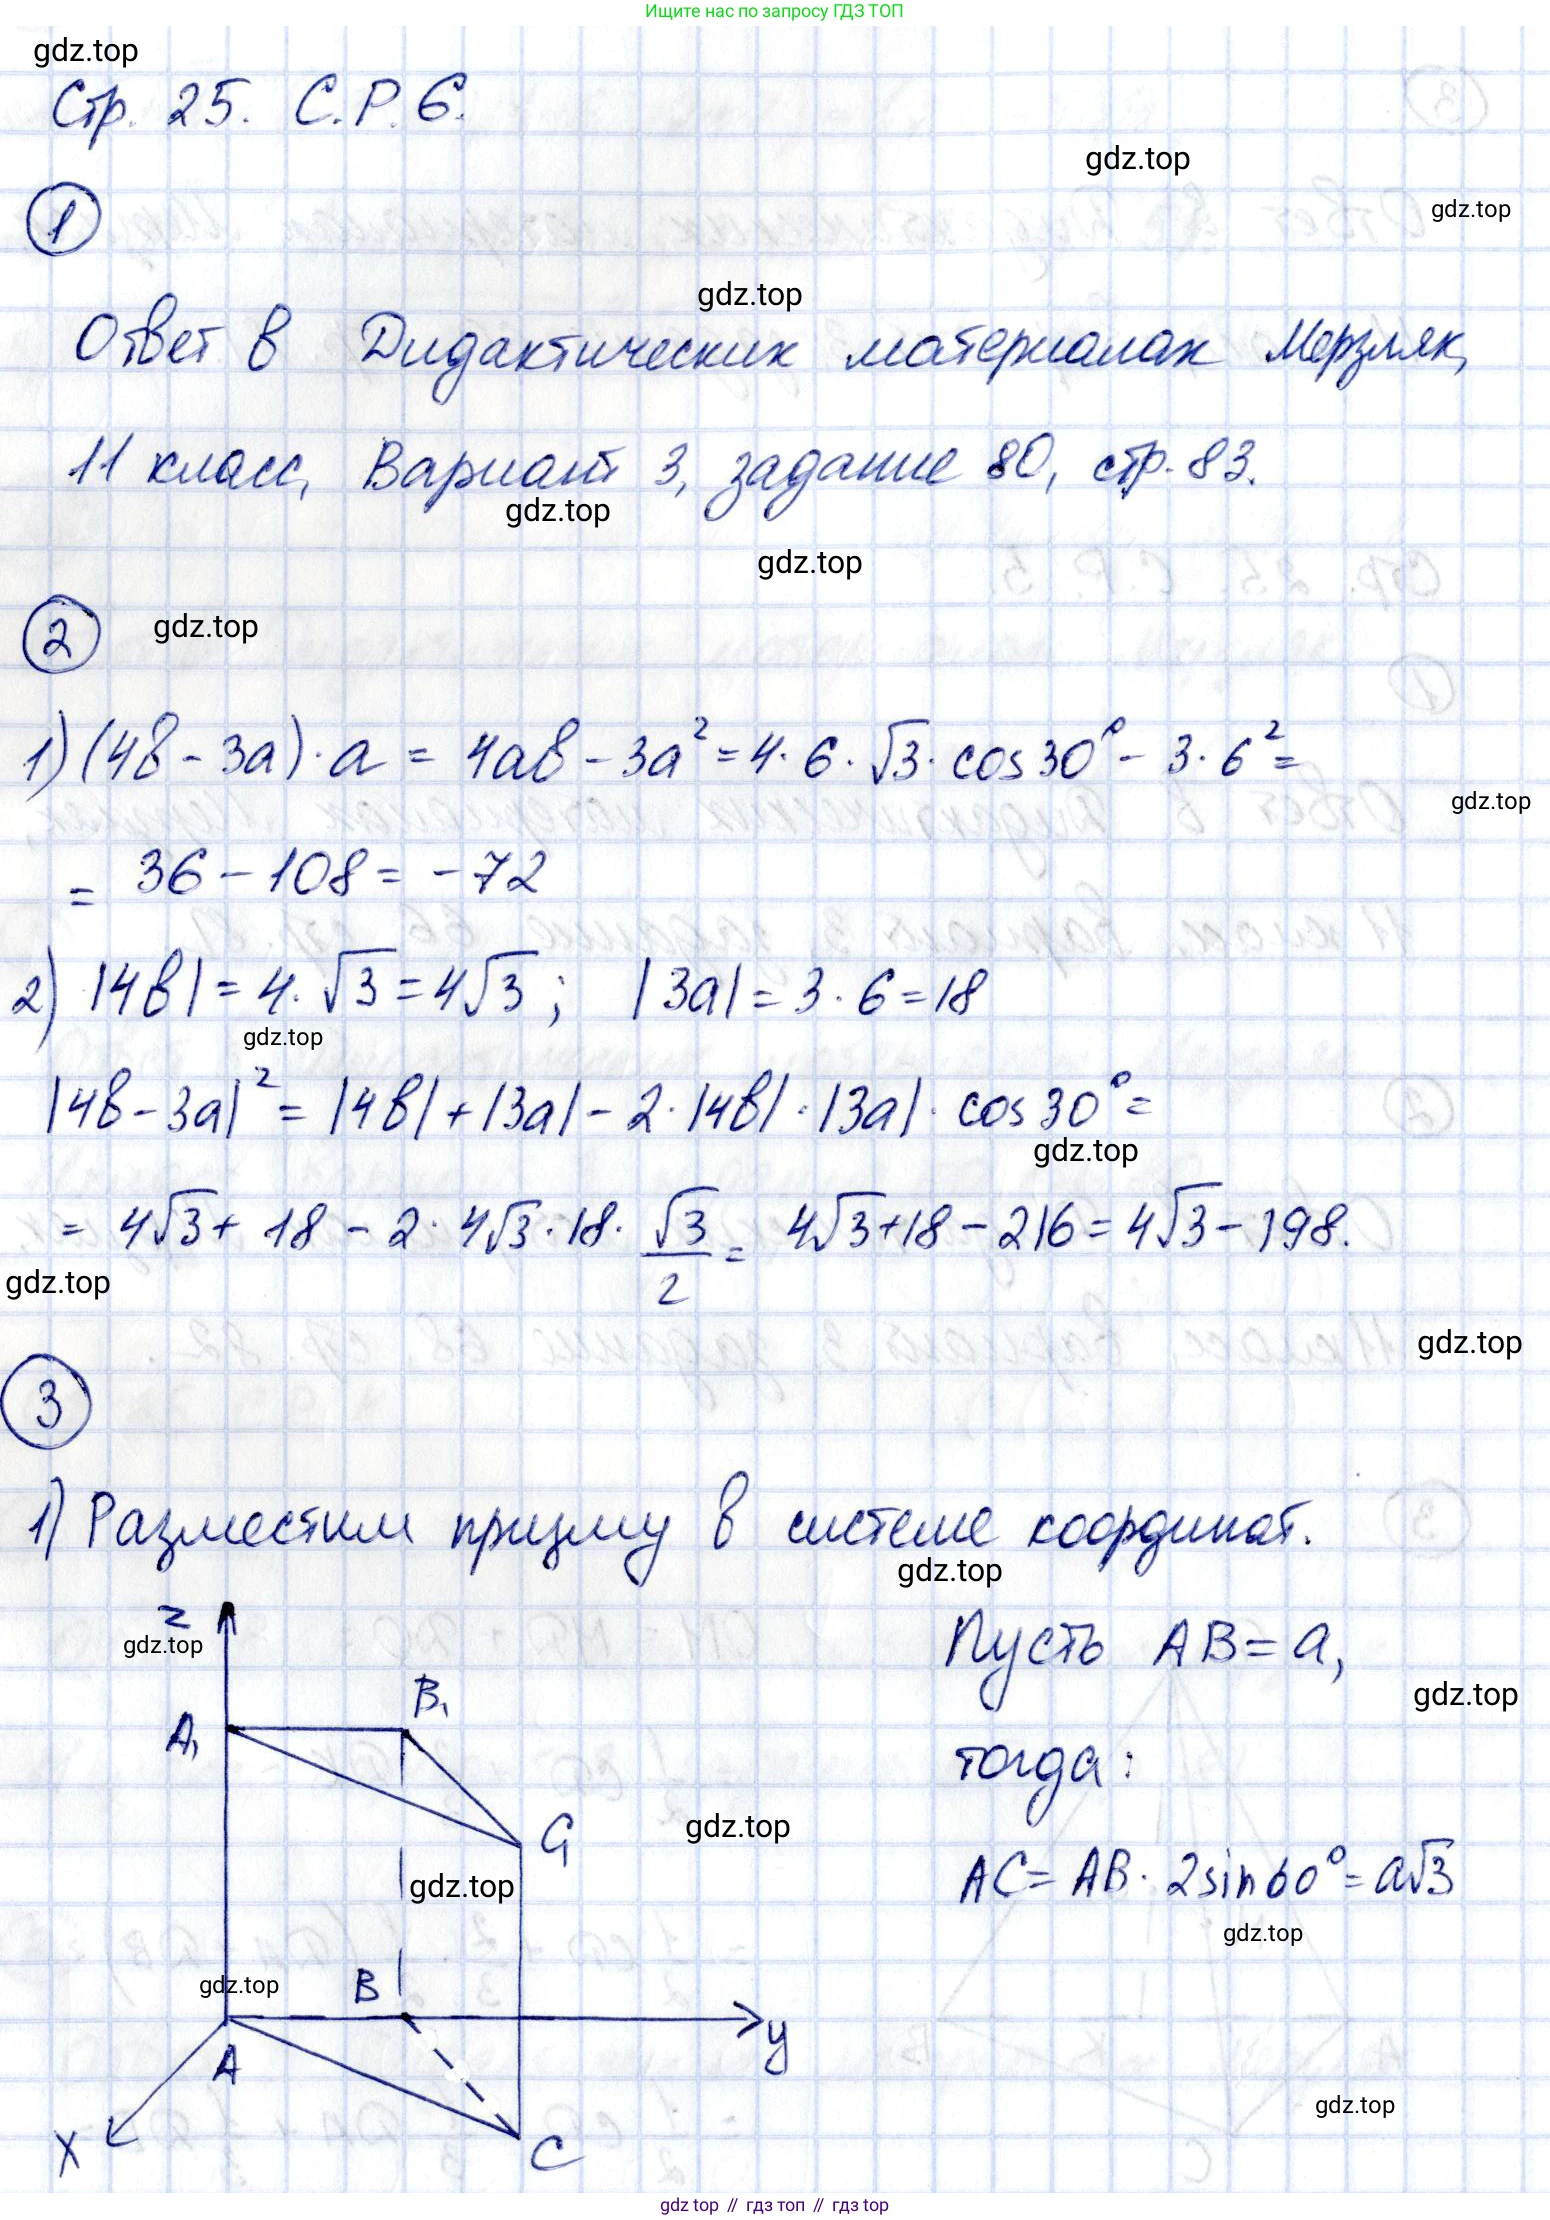 Ищите нас по запросу ГДЗ ТОП
gdz.top
Стр. 25. С.Р. 6.
gdz.top
gdz.top
1
gdz.top
Ответ в Дидактических материалах Мерзляк,
11 класс, Вариант 3, задание 80, стр. 83.
gdz.top
gdz.top
2
gdz.top
1) (4в - 3а) · а = 4ав - 3а² = 4 · 6 · √3 · cos 30° - 3 · 6² =
gdz.top
= 36 - 108 = -72
2) |4в| = 4 · √3 = 4√3 ; |3а| = 3 · 6 = 18
gdz.top
|4в - 3а|² = |4в| + |3а| - 2 · |4в| · |3а| · cos 30° =
gdz.top
= 4√3 + 18 - 2 · 4√3 · 18 · √3/2 = 4√3 + 18 - 216 = 4√3 - 198.
gdz.top
gdz.top
3
1) Разместим призму в системе координат.
gdz.top
z
gdz.top
Пусть AB = a,
B₁
gdz.top
A₁
тогда:
gdz.top
C₁
gdz.top
AC = AB · 2sin 60° = a√3
gdz.top
gdz.top
B
y
A
gdz.top
x
C
gdz top // гдз топ // gdz top